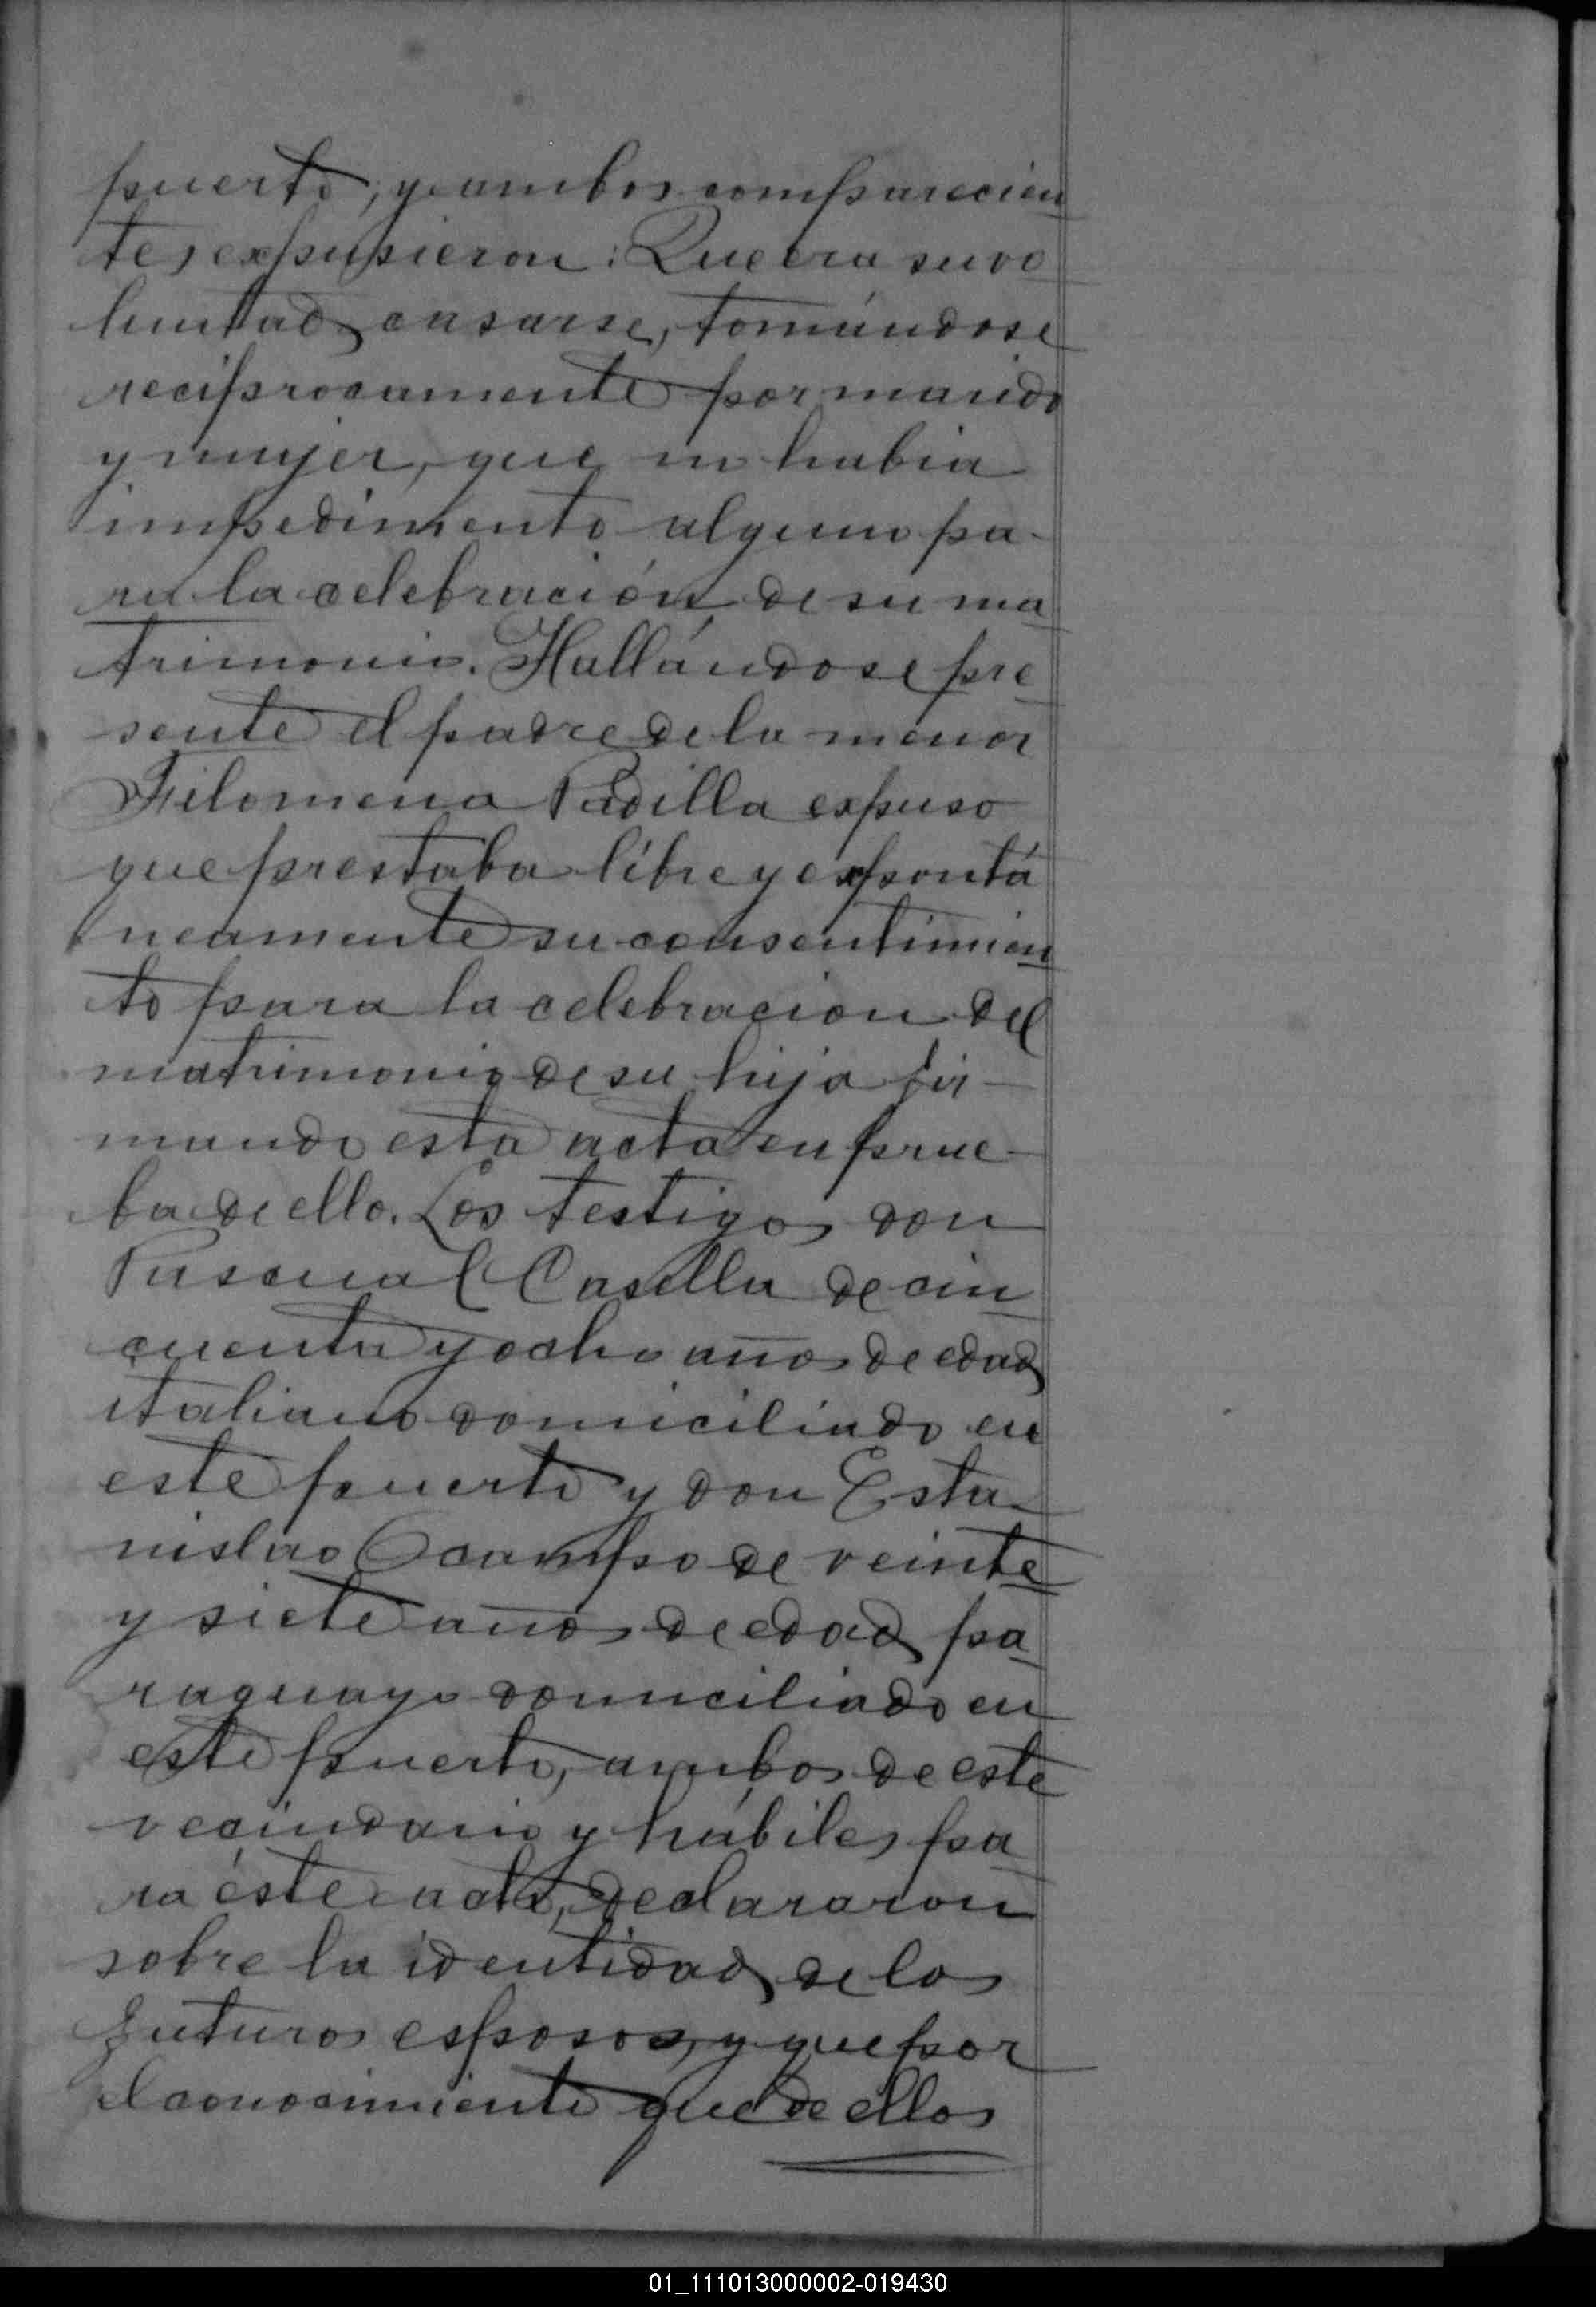 puerto, y ambos comparecien
tes expusieron: Que era su vo
luntad casarse, tomándose
reciprocamente por marido
y mujer, que no habia
impedimento alguno pa-
ra la celebración de su ma
trimonio. Hallándose pre
sente el padre de la menor
Filomena Padilla expuso
que prestaba libre y expontá
neamente su consentimien
to para la celebracion del
matrimonio de su hija fir-
mando esta acta en prue-
ba de ello. Los testigos don
Pascual Casella de cin
cuenta y ocho años de edad
italiano domiciliado en
este puerto y don Esta-
nislao Ocampo de veinte
y siete años de edad pa
raguayo domiciliado en
este puerto, ambos de este
vecindario y hábiles pa
ra éste acto, declararon
sobre la identidad de los
futuros esposos, y que por
el conocimiento que de ellos
01_111013000002-019430